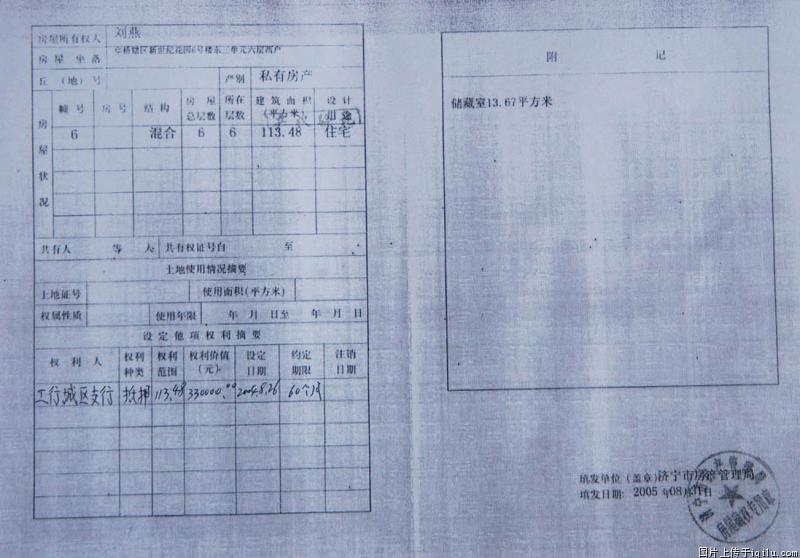 房屋所有权人 刘燕
房屋坐落 区新世纪花园6号楼东二单元六层西户
丘（地）号 产别 私有房产
房屋状况
幢号 房号 结构 房屋总层数 所在层数 建筑面积（平方米） 设计用途
6 混合 6 6 113.48 住宅
共有人 等 人 共有权证号自 至
土地使用情况摘要
土地证号 使用面积(平方米)
权属性质 使用年限 年 月 日至 年 月 日
设定他项权利摘要
权利人 权利种类 权利范围 权利价值（元） 设定日期 约定期限 注销日期
工行城区支行 抵押 113.48 330000.00 2004.8.26 60个月
附 记
储藏室13.67平方米
填发单位（盖章）济宁市房产管理局
填发日期: 2005 年08月 日
图片上传于iqilu.com